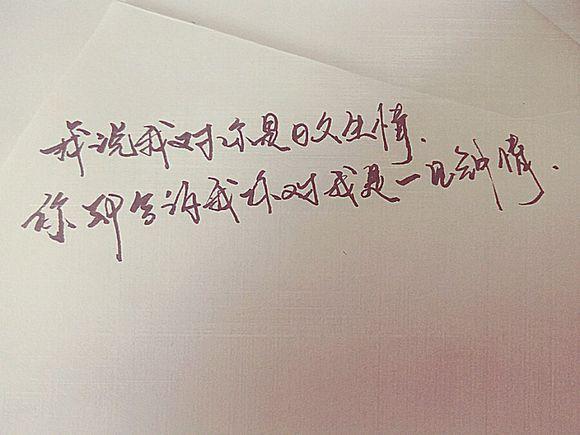 我说我对你是日久生情.
你却告诉我你对我是一见钟情.